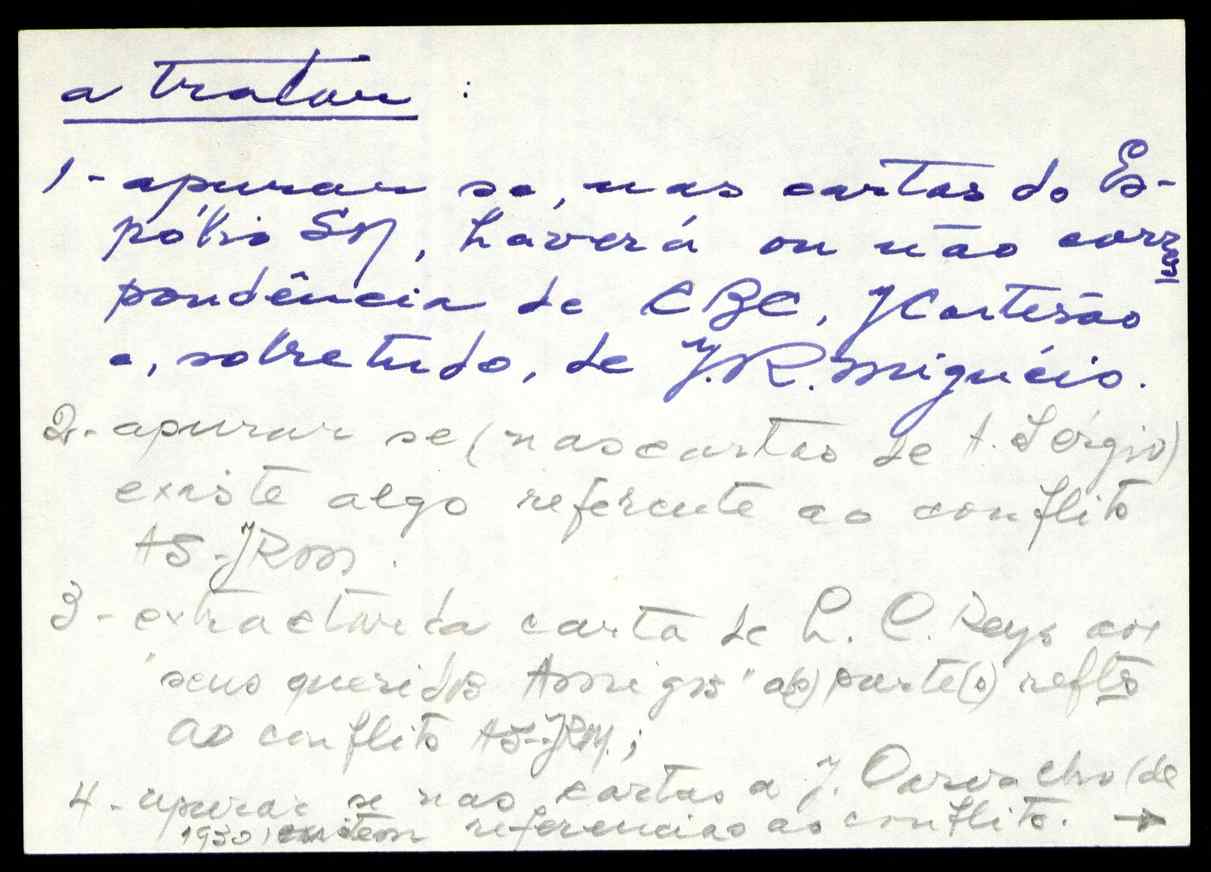 a tratar :
1- apurar se, nas cartas do Es-
pólio SM, haverá ou não corres
pondência de CBC, JCortesão
e, sobretudo, de J.R.Miguéis.
2- apurar se (nas cartas de A. Sérgio)
existe algo referente ao conflito
AS-JRM.
3- extractar da carta de L. C. Reys aos
"seus queridos Amigos" a(s) parte(s) reftes
ao conflito AS-JRM;
4- apurar se nas cartas a J. Carvalho (de
1930) existem referencias ao conflito. →